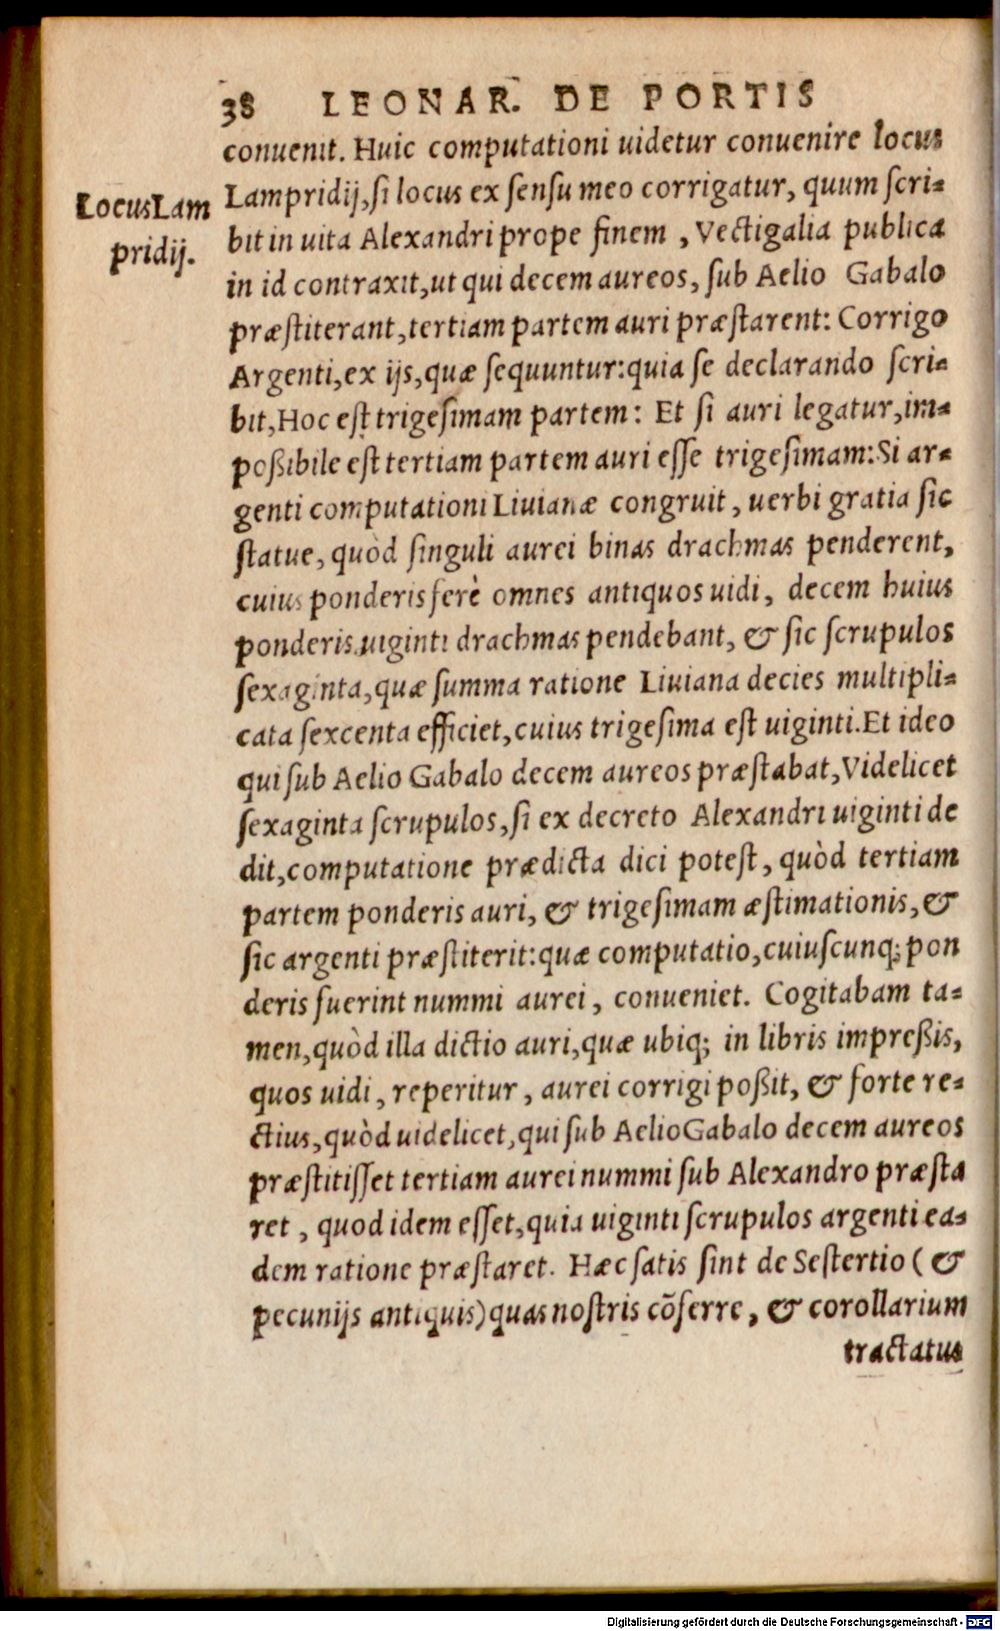 38 LEONAR. DE PORTIS
conuenit. Huic computationi uidetur conuenire locus
LocusLam
pridij.
Lampridij,ſi locus ex ſenſu meo corrigatur, quum ſcri-
bit in uita Alexandri prope finem , Vectigalia publica
in id contraxit,ut qui decem aureos, ſub Aelio Gabalo
præſtiterant,tertiam partem auri præſtarent: Corrigo
Argenti,ex ijs,quæ ſequuntur:quia ſe declarando ſcri-
bit,Hoc eſt trigeſimam partem: Et ſi auri legatur,im-
poßibile eſt tertiam partem auri eſſe trigeſimam:Si ar-
genti computationi Liuianæ congruit, uerbi gratia ſic
ſtatue, quòd ſinguli aurei binas drachmas penderent,
cuius ponderis ferè omnes antiquos uidi, decem huius
ponderis uiginti drachmas pendebant, & ſic ſcrupulos
ſexaginta,quæ ſumma ratione Liuiana decies multipli-
cata ſexcenta efficiet,cuius trigeſima eſt uiginti.Et ideo
qui ſub Aelio Gabalo decem aureos præſtabat,Videlicet
ſexaginta ſcrupulos,ſi ex decreto Alexandri uiginti de
dit,computatione prædicta dici poteſt, quòd tertiam
partem ponderis auri, & trigeſimam æſtimationis,&
ſic argenti præſtiterit:quæ computatio,cuiuſcunq; pon
deris fuerint nummi aurei, conueniet. Cogitabam ta-
men,quòd illa dictio auri,quæ ubiq; in libris impreßis,
quos uidi, reperitur, aurei corrigi poßit, & forte re-
ctius,quòd uidelicet,qui ſub AelioGabalo decem aureos
præſtitiſſet tertiam aurei nummi ſub Alexandro præſta
ret , quod idem eſſet,quia uiginti ſcrupulos argenti ea-
dem ratione præſtaret. Hæc ſatis ſint de Seſtertio ( &
pecunijs antiquis)quas noſtris cõferre, & corollarium
tractatus
Digitalisierung gefördert durch die Deutsche Forschungsgemeinschaft - DFG